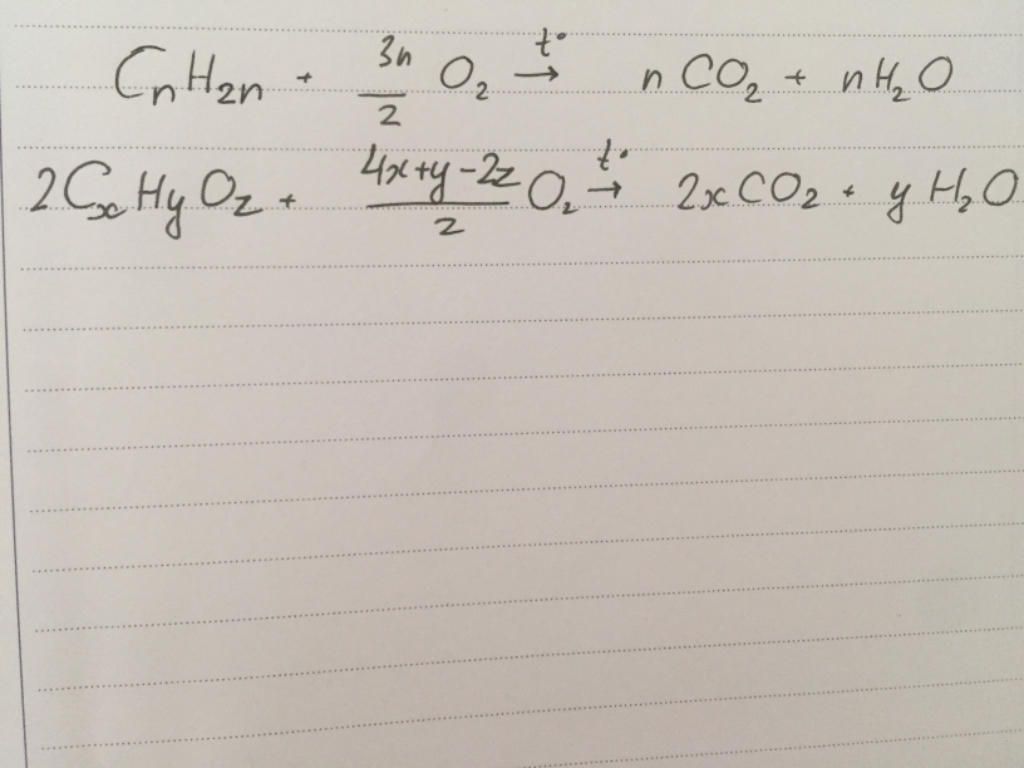 CnH2n + 3n/2 O2 →t° nCO2 + nH2O
2CxHyOz + (4x+y-2z)/2 O2 →t° 2xCO2 + yH2O